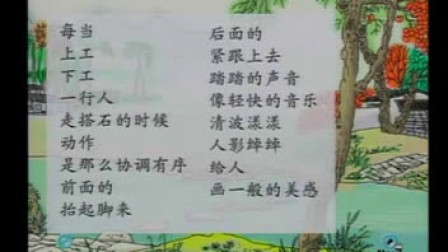 每当
上工
下工
一行人
走搭石的时候
动作
是那么协调有序
前面的
抬起脚来
后面的
紧跟上去
踏踏的声音
像轻快的音乐
清波漾漾
人影绰绰
给人
画一般的美感